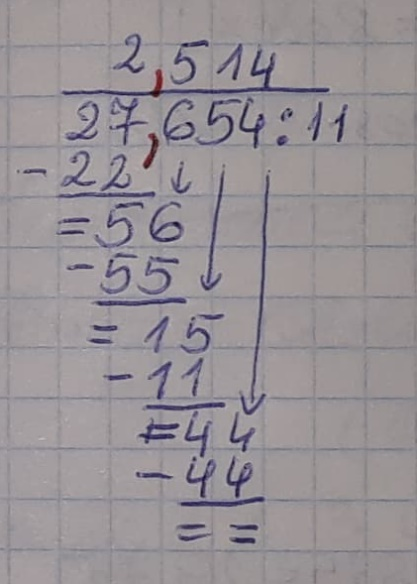 2,514
27,654:11
-22
=56
-55
=15
-11
=44
-44
==